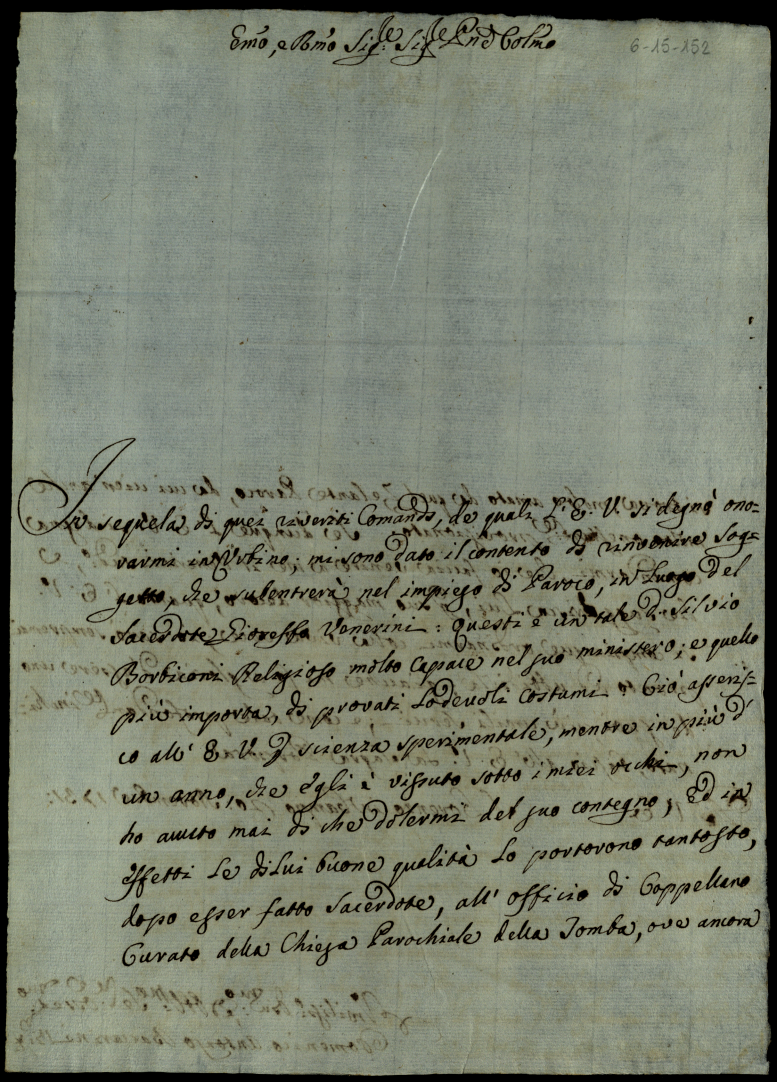 Emo, e Rmo Sig.re Sig.re Pne Colmo
6-15-152
In sequela di quei riveriti Comandi, de quali L'E. V. si degnò ono=
rarmi in Urbino: mi sono dato il contento di rinvenire Sog=
getto, che subentrerà nel impiego di Paroco, in luogo del
Sacerdote Gioreffo Venerini: Questi è un tale D. Silvio
Borbiconi Religioso molto capace nel suo ministero; e quello
più importa, di provati Lodevoli costumi: Ciò asseris=
co all' E. V. P scienza sperimentale, mentre in più d'
un anno, che egli è vissuto sotto i miei occhi, non
ho avuto mai di che dolermi del suo contegno; Ed in
effetti le di Lui buone qualità lo portorono tantosto,
dopo esser fatto Sacerdote, all' officio di Coppellano
Curato della Chiesa Parochiale della Tomba, ove ancora